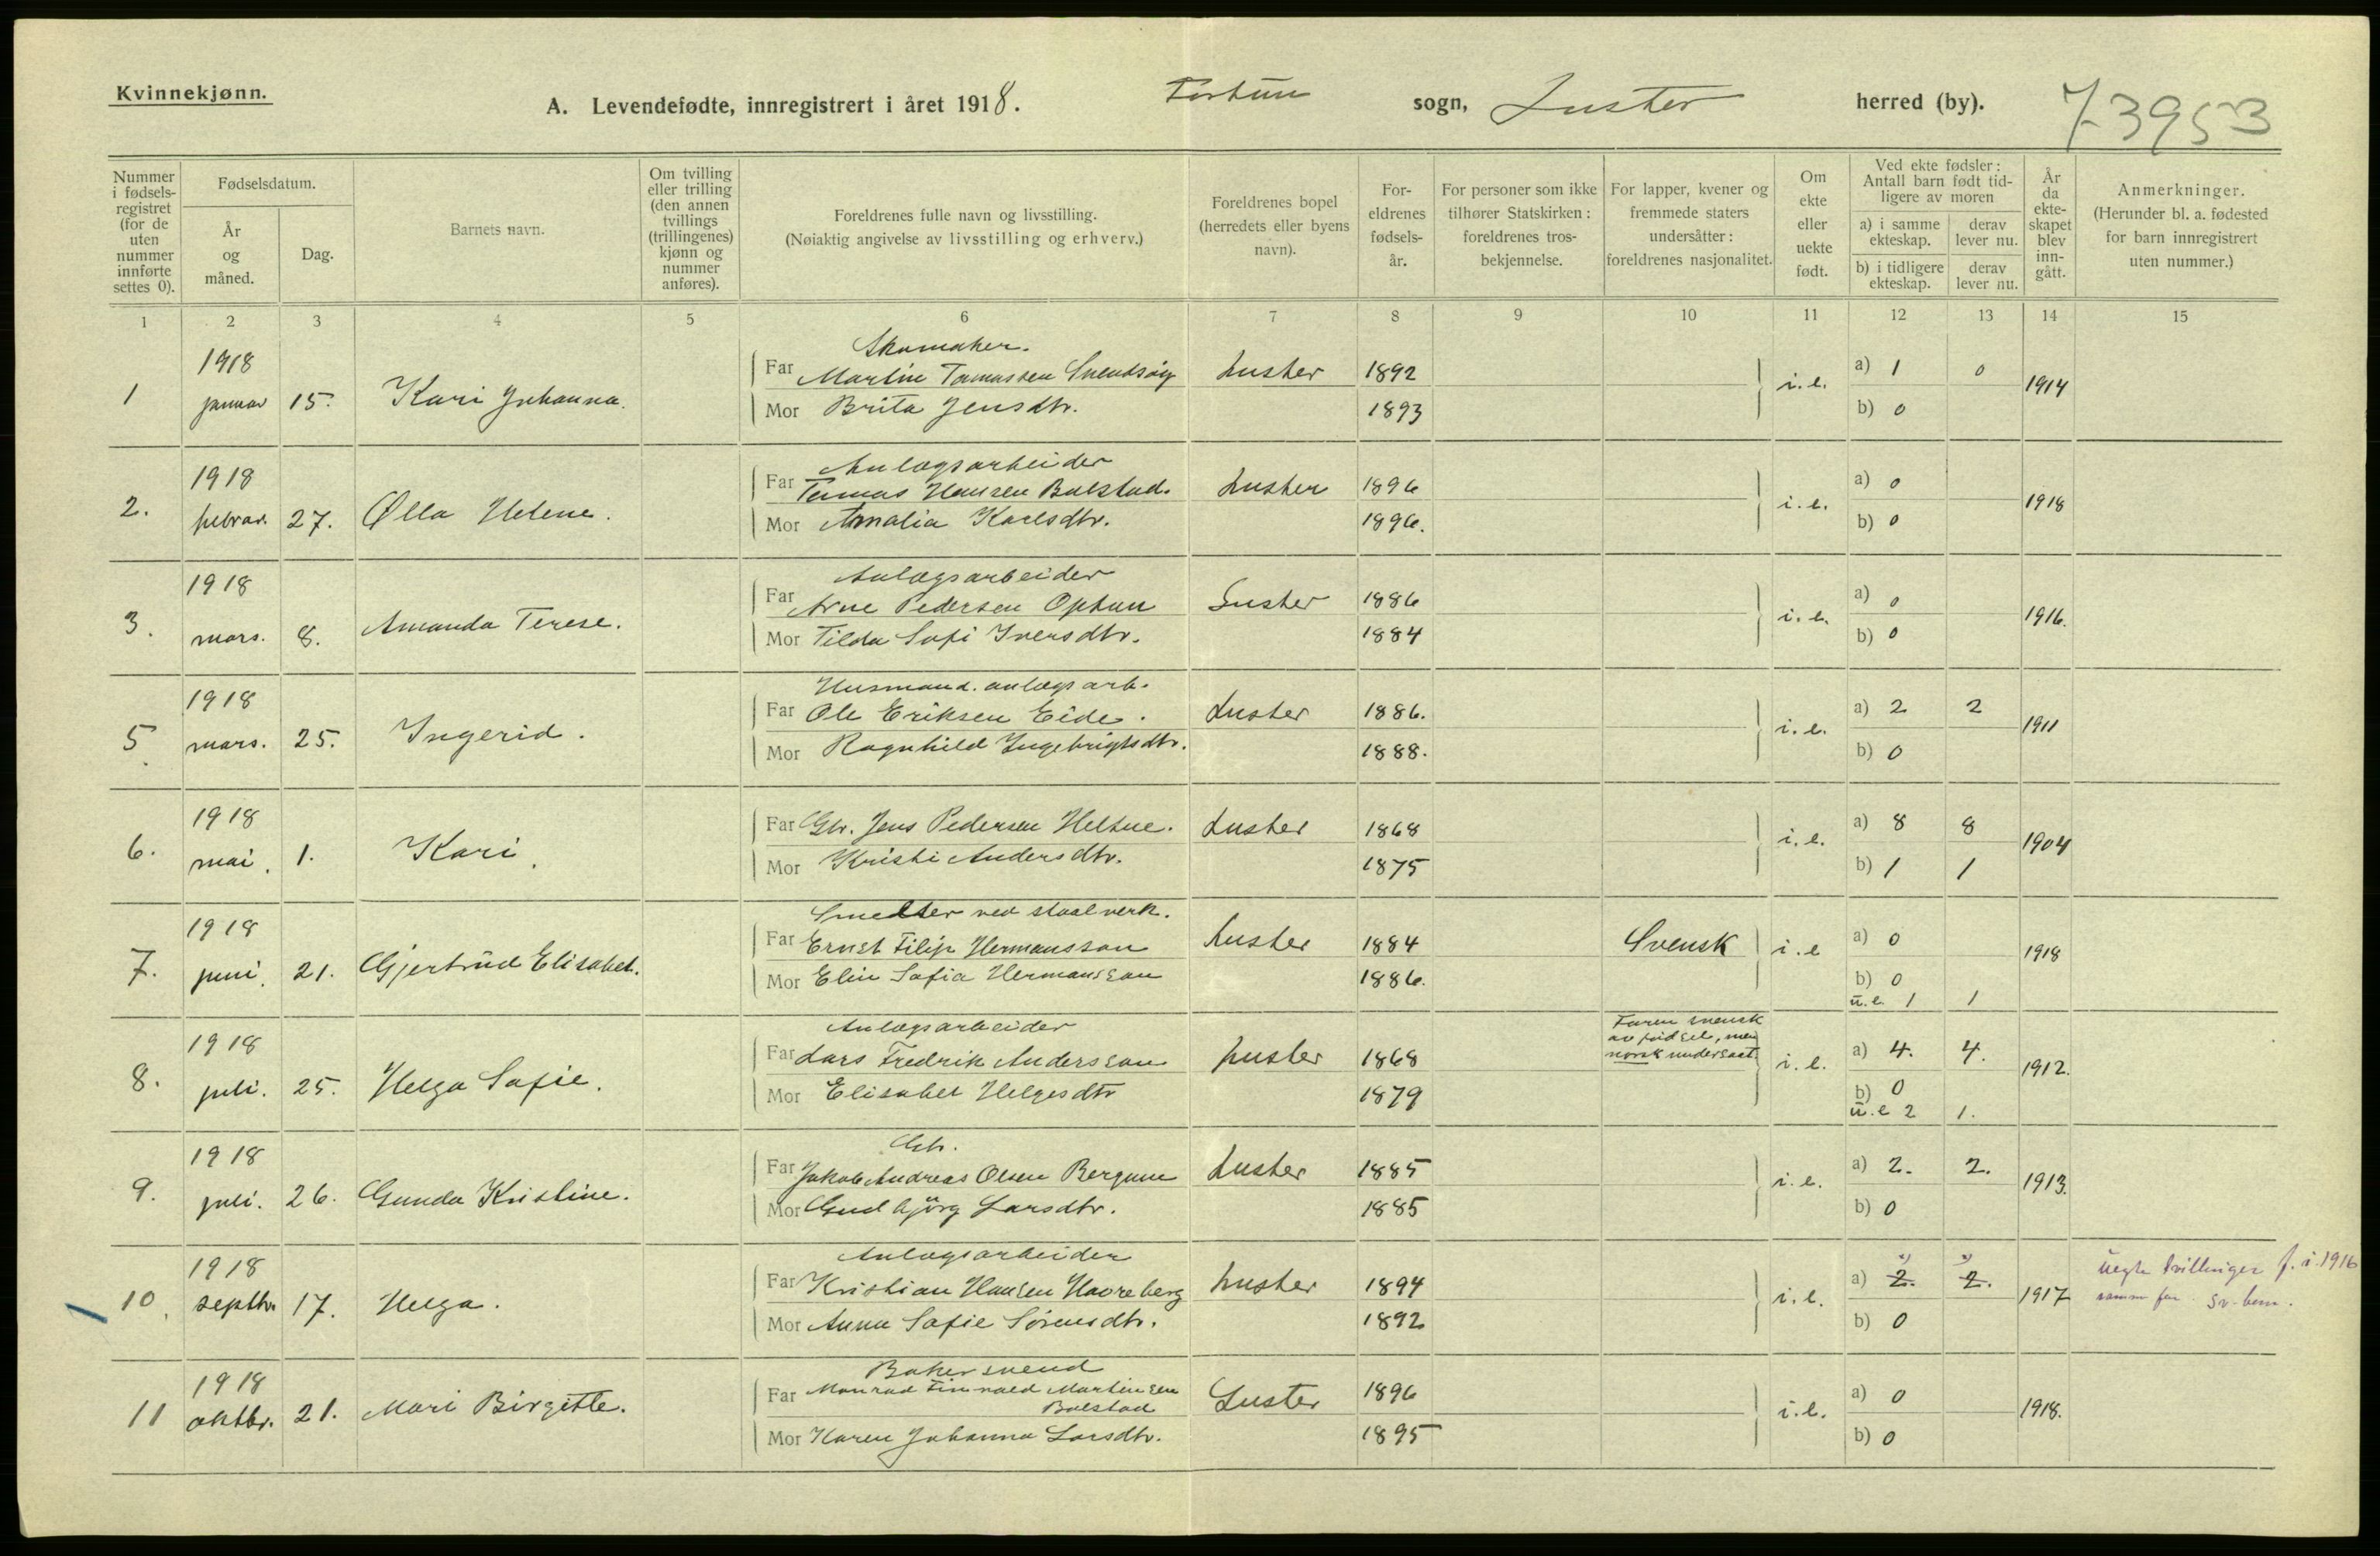 Kvinnekjønn.
A. Levendefødte, innregistrert i året 1918. Fortun sogn, Luster herred (by). 73953
Nummer i fødsels-registret (for de uten nummer innførte settes 0).
Fødselsdatum.
År og måned.
Dag.
Barnets navn.
Om tvilling eller trilling (den annen tvillings (trillingenes) kjønn og nummer anføres).
Foreldrenes fulle navn og livsstilling.
(Nøiaktig angivelse av livsstilling og erhverv.)
Foreldrenes bopel (herredets eller byens navn).
For-eldrenes fødsels-år.
For personer som ikke tilhører Statskirken: foreldrenes tros-bekjennelse.
For lapper, kvener og fremmede staters undersåtter: foreldrenes nasjonalitet.
Om ekte eller uekte født.
Ved ekte fødsler: Antall barn født tid-ligere av moren
a) i samme ekteskap. derav lever nu.
b) i tidligere ekteskap. derav lever nu.
År da ekte-skapet blev inn-gått.
Anmerkninger.
(Herunder bl. a. fødested for barn innregistrert uten nummer.)
1 2 3 4 5 6 7 8 9 10 11 12 13 14 15
1918 Skomaker.
1 januar 15. Kari Johanna. Far Martin Tomassen Svendsøy Luster 1892 i.e. a) 1 0 1914
Mor Brita Jensdtr. 1893 b) 0
1918 Anlægsarbeider
2. februar. 27. Olla Helene. Far Tomas Hansen Bolstad. Luster 1896 i.e. a) 0 1918
Mor Amalia Karlsdtr. 1896. b) 0
1918 Anlægsarbeider
3. mars. 8. Amanda Terese. Far Arne Pedersen Optun Luster 1886 i.e. a) 0 1916.
Mor Tilda Sofi Iversdtr. 1884 b) 0
1918 Husmand. anlægsarb.
5. mars. 25. Ingerid. Far Ole Eriksen Eide. Luster 1886. i.e. a) 2 2 1911
Mor Ragnhild Ingebrigtsdtr. 1888. b) 0
1918
6. mai. 1. Kari. Far Gbr. Jens Pedersen Heltne. Luster 1868 i.e. a) 8 8 1904
Mor Kristi Andersdtr. 1875 b) 1 1
1918 Smelter ved staalverk.
7. juni. 21. Gjertrud Elisabet. Far Ernst Filip Hermansson Luster 1884 Svensk i.e a) 0 1918
Mor Elin Sofia Hermansson 1886. b) 0
u.e. 1 1
1918 Anlægsarbeider Faren svensk av fødsel, men norsk undersaat.
8. juli. 25. Helga Sofie. Far Lars Fredrik Andersson Luster 1868 i.e. a) 4. 4. 1912.
Mor Elisabet Helgesdtr 1879 b) 0
u.e 2 1.
1918 Gbr.
9. juli. 26. Gunda Kristine. Far Jakob Andreas Olsen Bergum Luster 1885 i.e. a) 2. 2. 1913.
Mor Gudbjörg Larsdtr. 1885 b) 0
1918 Anlægsarbeider
10. septbr. 17. Helga. Far Kristian Hansen Havreberg Luster 1894 i.e. a) 2. 2. 1917 uegte tvillinger f. i. 1916
samme far.
Mor Anna Sofie Sörensdtr. 1892 b) 0
1918 Bakersvend
11 oktbr. 21. Mari Birgitte. Far Monrad Finvald Martinsen Bolstad Luster 1896 i.e. a) 0 1918.
Mor Karen Johanna Larsdtr. 1895 b) 0